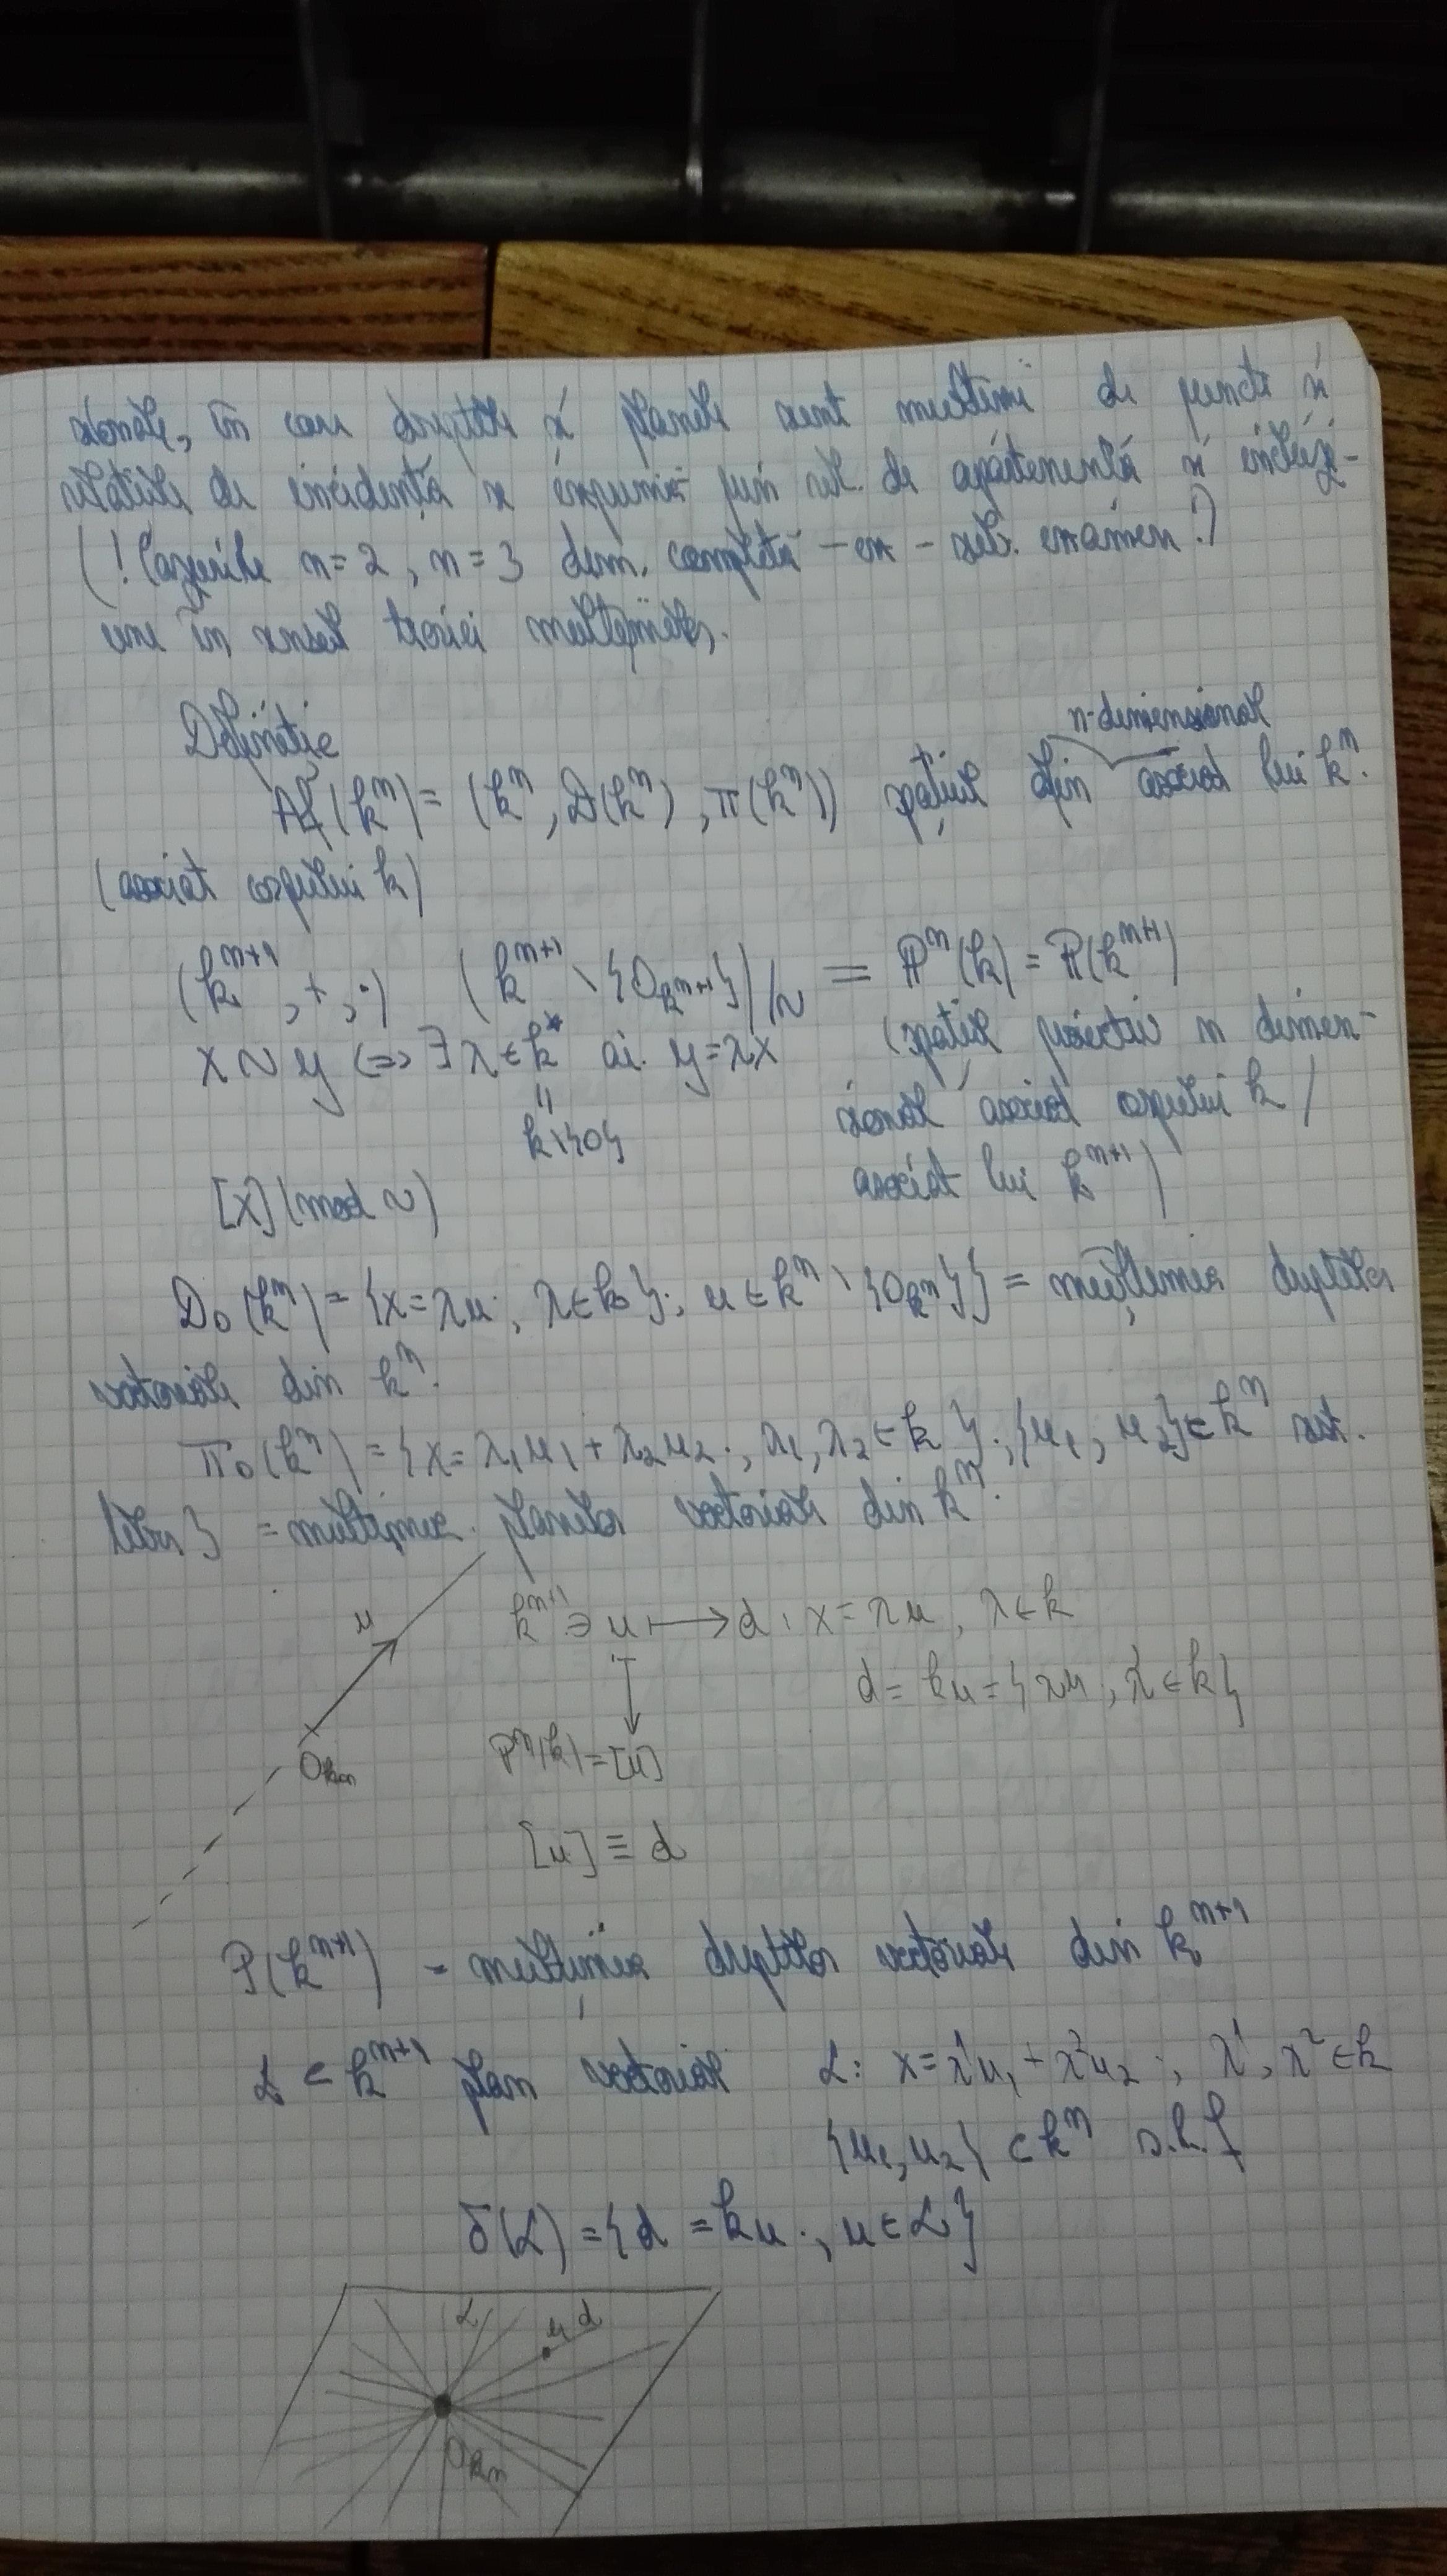 sionale, în care dreptele și planele sunt mulțimi de puncte și
relațiile de incidență se exprimă prin rel. de apartenență și incluzi-
(! Cazurile n=2, n=3 dem. completă - ex - examen!)
une în sensul teoriei mulțimilor.
Definiție
n-dimensional
Af(k^n) = (k^n, D(k^n), π(k^n)) spațiul afin asociat lui k^n.
(asociat corpului k)
(k^{n+1}, +, ·) (k^{n+1} \ {0_{k^{n+1}}})/~ = P^n(k) = P(k^{n+1})
x ~ y <=> ∃ λ ∈ k* aî. y = λx (spațiul proiectiv n dimen-
k\{0} sional asociat corpului k /
[x] (mod ~) asociat lui k^{n+1})
D_0(k^n) = {x = λu; λ ∈ k}; u ∈ k^n \ {0_{k^n}}} = mulțimea dreptelor
vectoriale din k^n.
π_0(k^n) = {x = λ_1u_1 + λ_2u_2; λ_1, λ_2 ∈ k}; {u_1, u_2} ∈ k^n sist.
liber} = mulțimea planelor vectoriale din k^n.
u
k^{n+1} ∋ u ↦ d: x = λu, λ ∈ k
d = ku = {λu; λ ∈ k}
0_{k^n}
P^n(k) = [u]
[u] ≡ d
P(k^{n+1}) - mulțimea dreptelor vectoriale din k^{n+1}
α ⊂ k^{n+1} plan vectorial α: x = λ^1u_1 + λ^2u_2; λ^1, λ^2 ∈ k
{u_1, u_2} ⊂ k^n
δ(α) = {d = ku; u ∈ α}
α u d
0_{k^n}